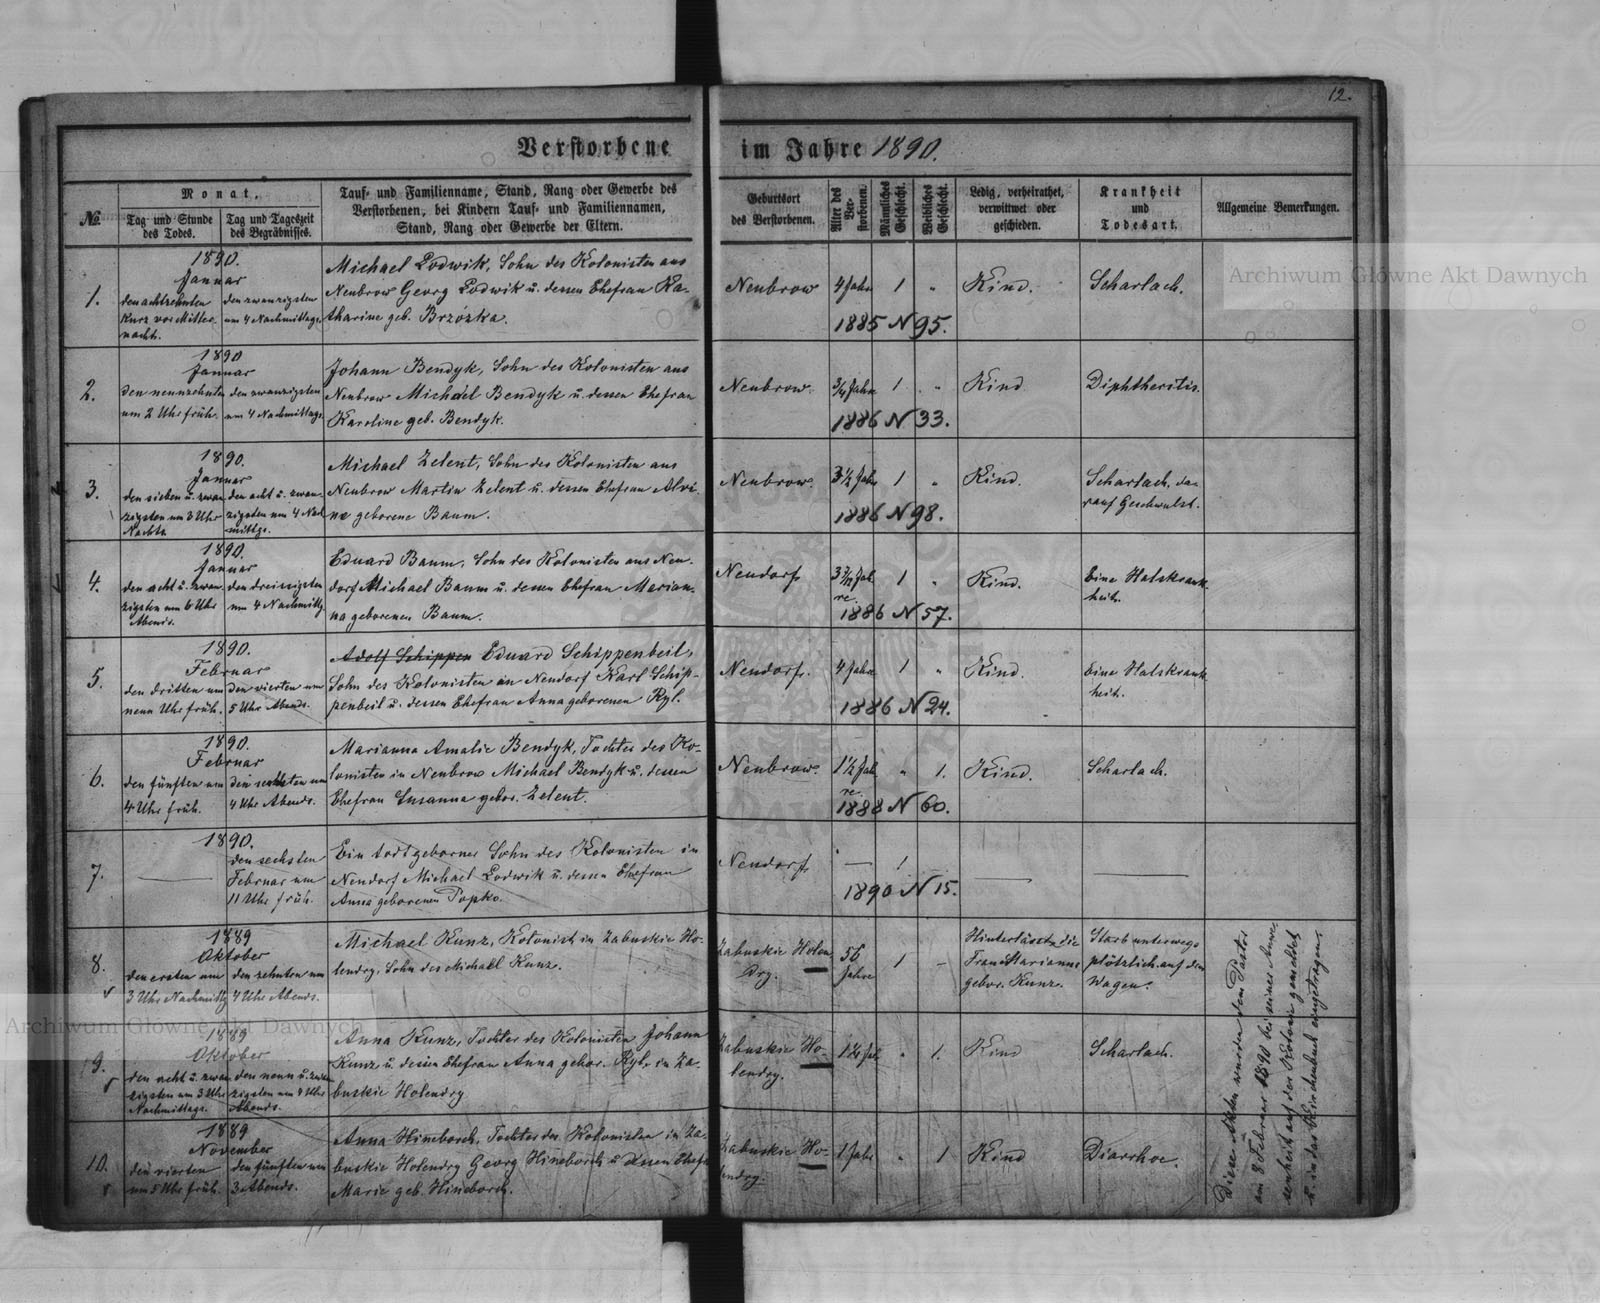 12.
Verstorbene im Jahre 1890.
No.
Monat,
Tag und Stunde des Todes.
Tag und Tageszeit des Begräbnisses.
Tauf- und Familienname, Stand, Rang oder Gewerbe des
Verstorbenen, bei Kindern Tauf- und Familiennamen,
Stand, Rang oder Gewerbe der Eltern.
Geburtsort
des Verstorbenen.
Alter des Verstorbenen.
Männliches Geschlecht.
Weibliches Geschlecht.
Ledig, verheirathet,
verwittwet oder
geschieden.
Krankheit
und
Todesart.
Allgemeine Bemerkungen.
1.
1890.
Januar
den achtzehnten
kurz vor Mitternacht.
den zwanzigsten
um 4 Nachmittags.
Michael Lodwik, Sohn des Kolonisten aus
Neubrow Georg Lodwik u. dessen Ehefrau Ka-
tharine geb. Brzozka.
Neubrow
4 Jahre
1
"
Kind.
Scharlach.
1885 N 95.
2.
1890
Januar
den neunzehnten
um 2 Uhr früh.
den zwanzigsten
um 4 Nachmittags.
Johann Bendyk, Sohn des Kolonisten aus
Neubrow Michael Bendyk u. dessen Ehefrau
Karoline geb. Bendyk.
Neubrow.
3/4 Jahre
1
"
Kind
Diphtheritis.
1886 N 33.
3.
1890.
Januar
den sieben u. zwan-
zigsten um 3 Uhr
Nachts
den acht u. zwan-
zigsten um 4 Nach-
mittgs.
Michael Zelent, Sohn des Kolonisten aus
Neubrow Martin Zelent u. dessen Ehefrau Alvi-
ne geborene Baum.
Neubrow.
3 1/2 Jahr
1
"
Kind.
Scharlach, da-
rauf Geschwulst.
1886 N 98.
4.
1890.
Januar
den acht u. zwan-
zigsten um 6 Uhr
Abends.
den dreissigsten
um 4 Nachmittg.
Eduard Baum, Sohn des Kolonisten aus Neu-
dorf Michael Baum u. dessen Ehefrau Marian-
na geborenen Baum.
Neudorf
Jah-
re.
1
"
Kind.
Eine Halskrank-
heit.
1886 N 57.
5.
1890.
Februar
den dritten um
neun Uhr früh.
den vierten um
5 Uhr Abends.
Adolf Schippen Eduard Schippenbeil,
Sohn des Kolonisten in Neudorf Karl Schip-
penbeil u. dessen Ehefrau Anna geborenen Ryl.
Neudorf.
4 Jahre
1
"
Kind.
Eine Halskrank-
heit.
1886 N 24.
6.
1890.
Februar
den fünften um
4 Uhr früh.
den sechsten um
4 Uhr Abends.
Marianna Amalie Bendyk, Tochter des Ko-
lonisten in Neubrow Michael Bendyk u. dessen
Ehefrau Susanna gebor. Zelent.
Neubrow.
1 1/2 Jah-
re.
"
1.
Kind.
Scharlach.
1888 N 60.
7.
1890.
den sechsten
Februar um
11 Uhr früh.
Ein todtgeborner Sohn des Kolonisten in
Neudorf Michael Lodwik u. dessen Ehefrau
Anna geborenen Popko.
Neudorf
1
1890 N 15.
8.
1889
Oktober
den ersten um
3 Uhr Nachmittg
den zehnten um
4 Uhr Abends.
Michael Kunz, Kolonist in Zabuskie Ho-
lendry. Sohn des Michael Kunz.
Zabuskie Holen-
dry.
56
Jahre
1
Hinterlässt die
Frau Marianne
gebor. Kunz.
Starb unterwegs
plötzlich auf dem
Wagen.
9.
1889
Oktober
den acht u. zwan-
zigsten um 3 Uhr
Nachmittags.
den neun u. zwan-
zigsten um 4 Uhr
Abends.
Anna Kunz, Tochter des Kolonisten Johann
Kunz u. dessen Ehefrau Anna gebor. Ryl. in Za-
buskie Holendry
Zabuskie Ho-
lendry.
"
1.
Kind
Scharlach.
10.
1889
November
den vierten
um 5 Uhr früh.
den fünften um
3 Abends.
Anna Hineborch, Tochter des Kolonisten in Za-
buskie Holendry Georg Hineborch u. dessen Ehefr
Marie geb. Hineborch.
Zabuskie Ho-
lendry.
1 Jahr
"
1
Kind
Diarrhoe.
Diese Akten wurden dem Pastor
am 8 Februar 1890 bei seiner Anwe-
senheit auf der Kolonie gemeldet
u. in das Kirchenbuch eingetragen.
Archiwum Główne Akt Dawnych
Archiwum Główne Akt Dawnych